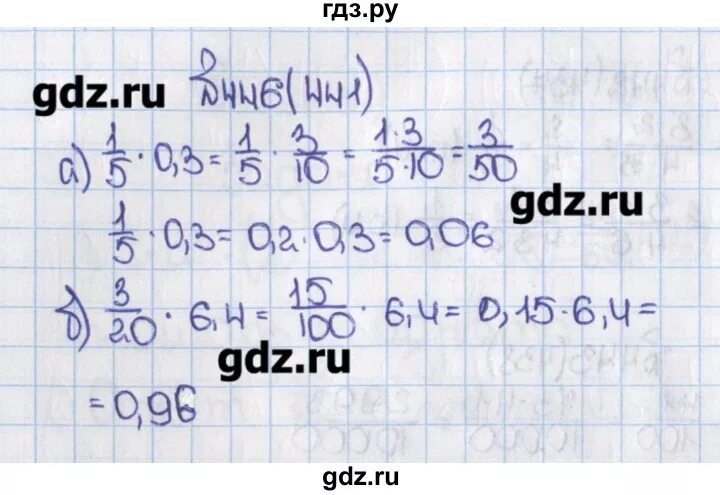 гдз.ру
gdz.ru
№446(441)
а) 1/5 · 0,3 = 1/5 · 3/10 = 1·3/5·10 = 3/50
gdz.ru
1/5 · 0,3 = 0,2 · 0,3 = 0,06
б) 3/20 · 6,4 = 15/100 · 6,4 = 0,15 · 6,4 =
gdz.ru
= 0,96
gdz.ru